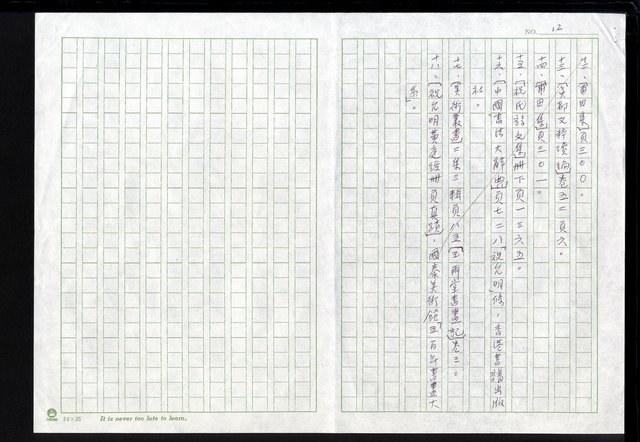 NO. 12
十二、「甫田集」頁三〇〇。
十三、「吳郡文粹續編」卷五二頁六。
十四、「甫田集」頁三〇一。
十五、「祝氏詩文集」冊下頁一三六五。
十六、「中國書法大辭典」頁七二八「祝允明條」,香港書譜出版
社。
十七、「美術叢書」二集三輯頁八五「玉雨堂書畫記」卷三。
十八、「祝允明黃庭經冊頁真蹟」,國泰美術館「五百年書畫大
系」。
24×25 It is never too late to learn.